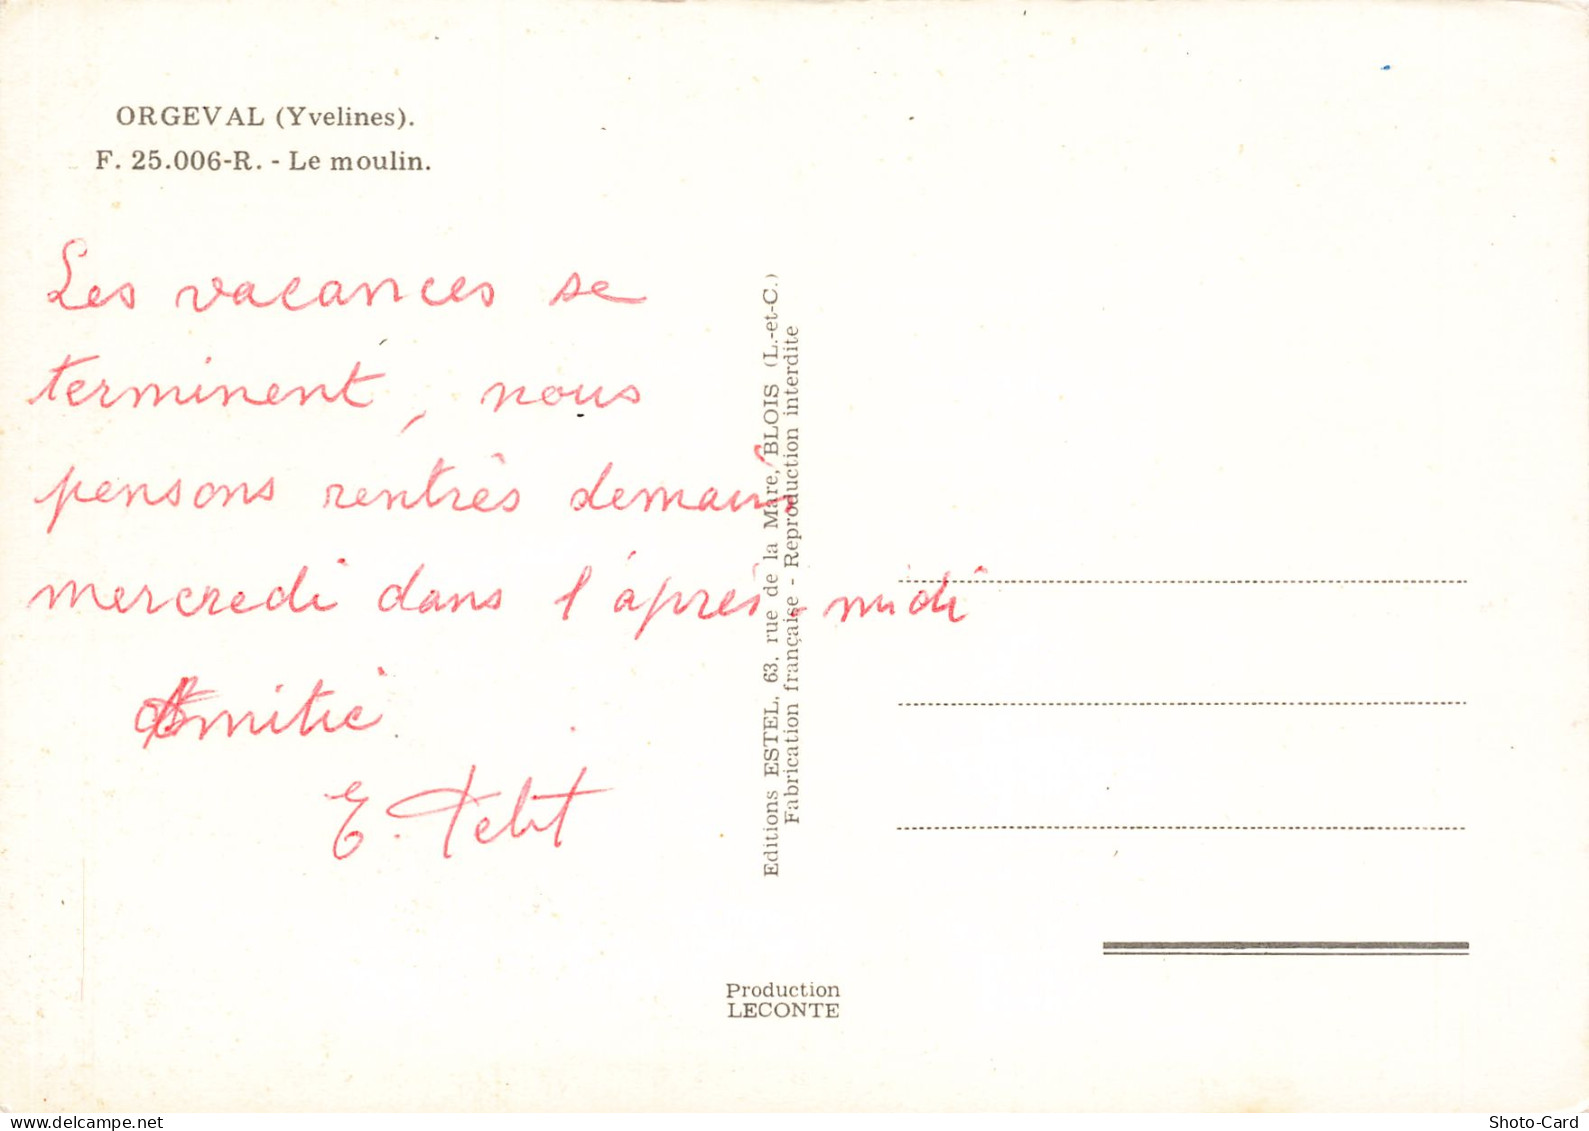 ORGEVAL (Yvelines).
F. 25.006-R. - Le moulin.
Les vacances se
terminent, nous
pensons rentrés demain
mercredi dans l'après-midi
Amitié
E.
Editions ESTEL, 63, rue de la Mare, BLOIS (L.-et-C.)
Fabrication française - Reproduction interdite
Production
LECONTE
Shoto-Card